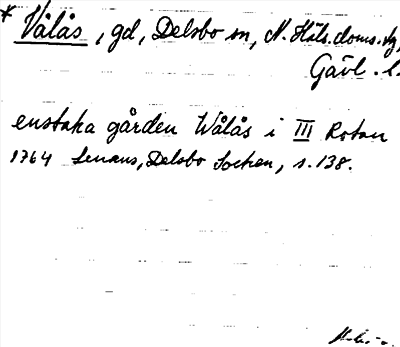 * Vålås, gd, Delsbo sn, N. Häls. doms. sg,
Gävl. l.
enstaka gården Wålås i III Rotan
1764 Lenæus, Delsbo Socken, s. 138.